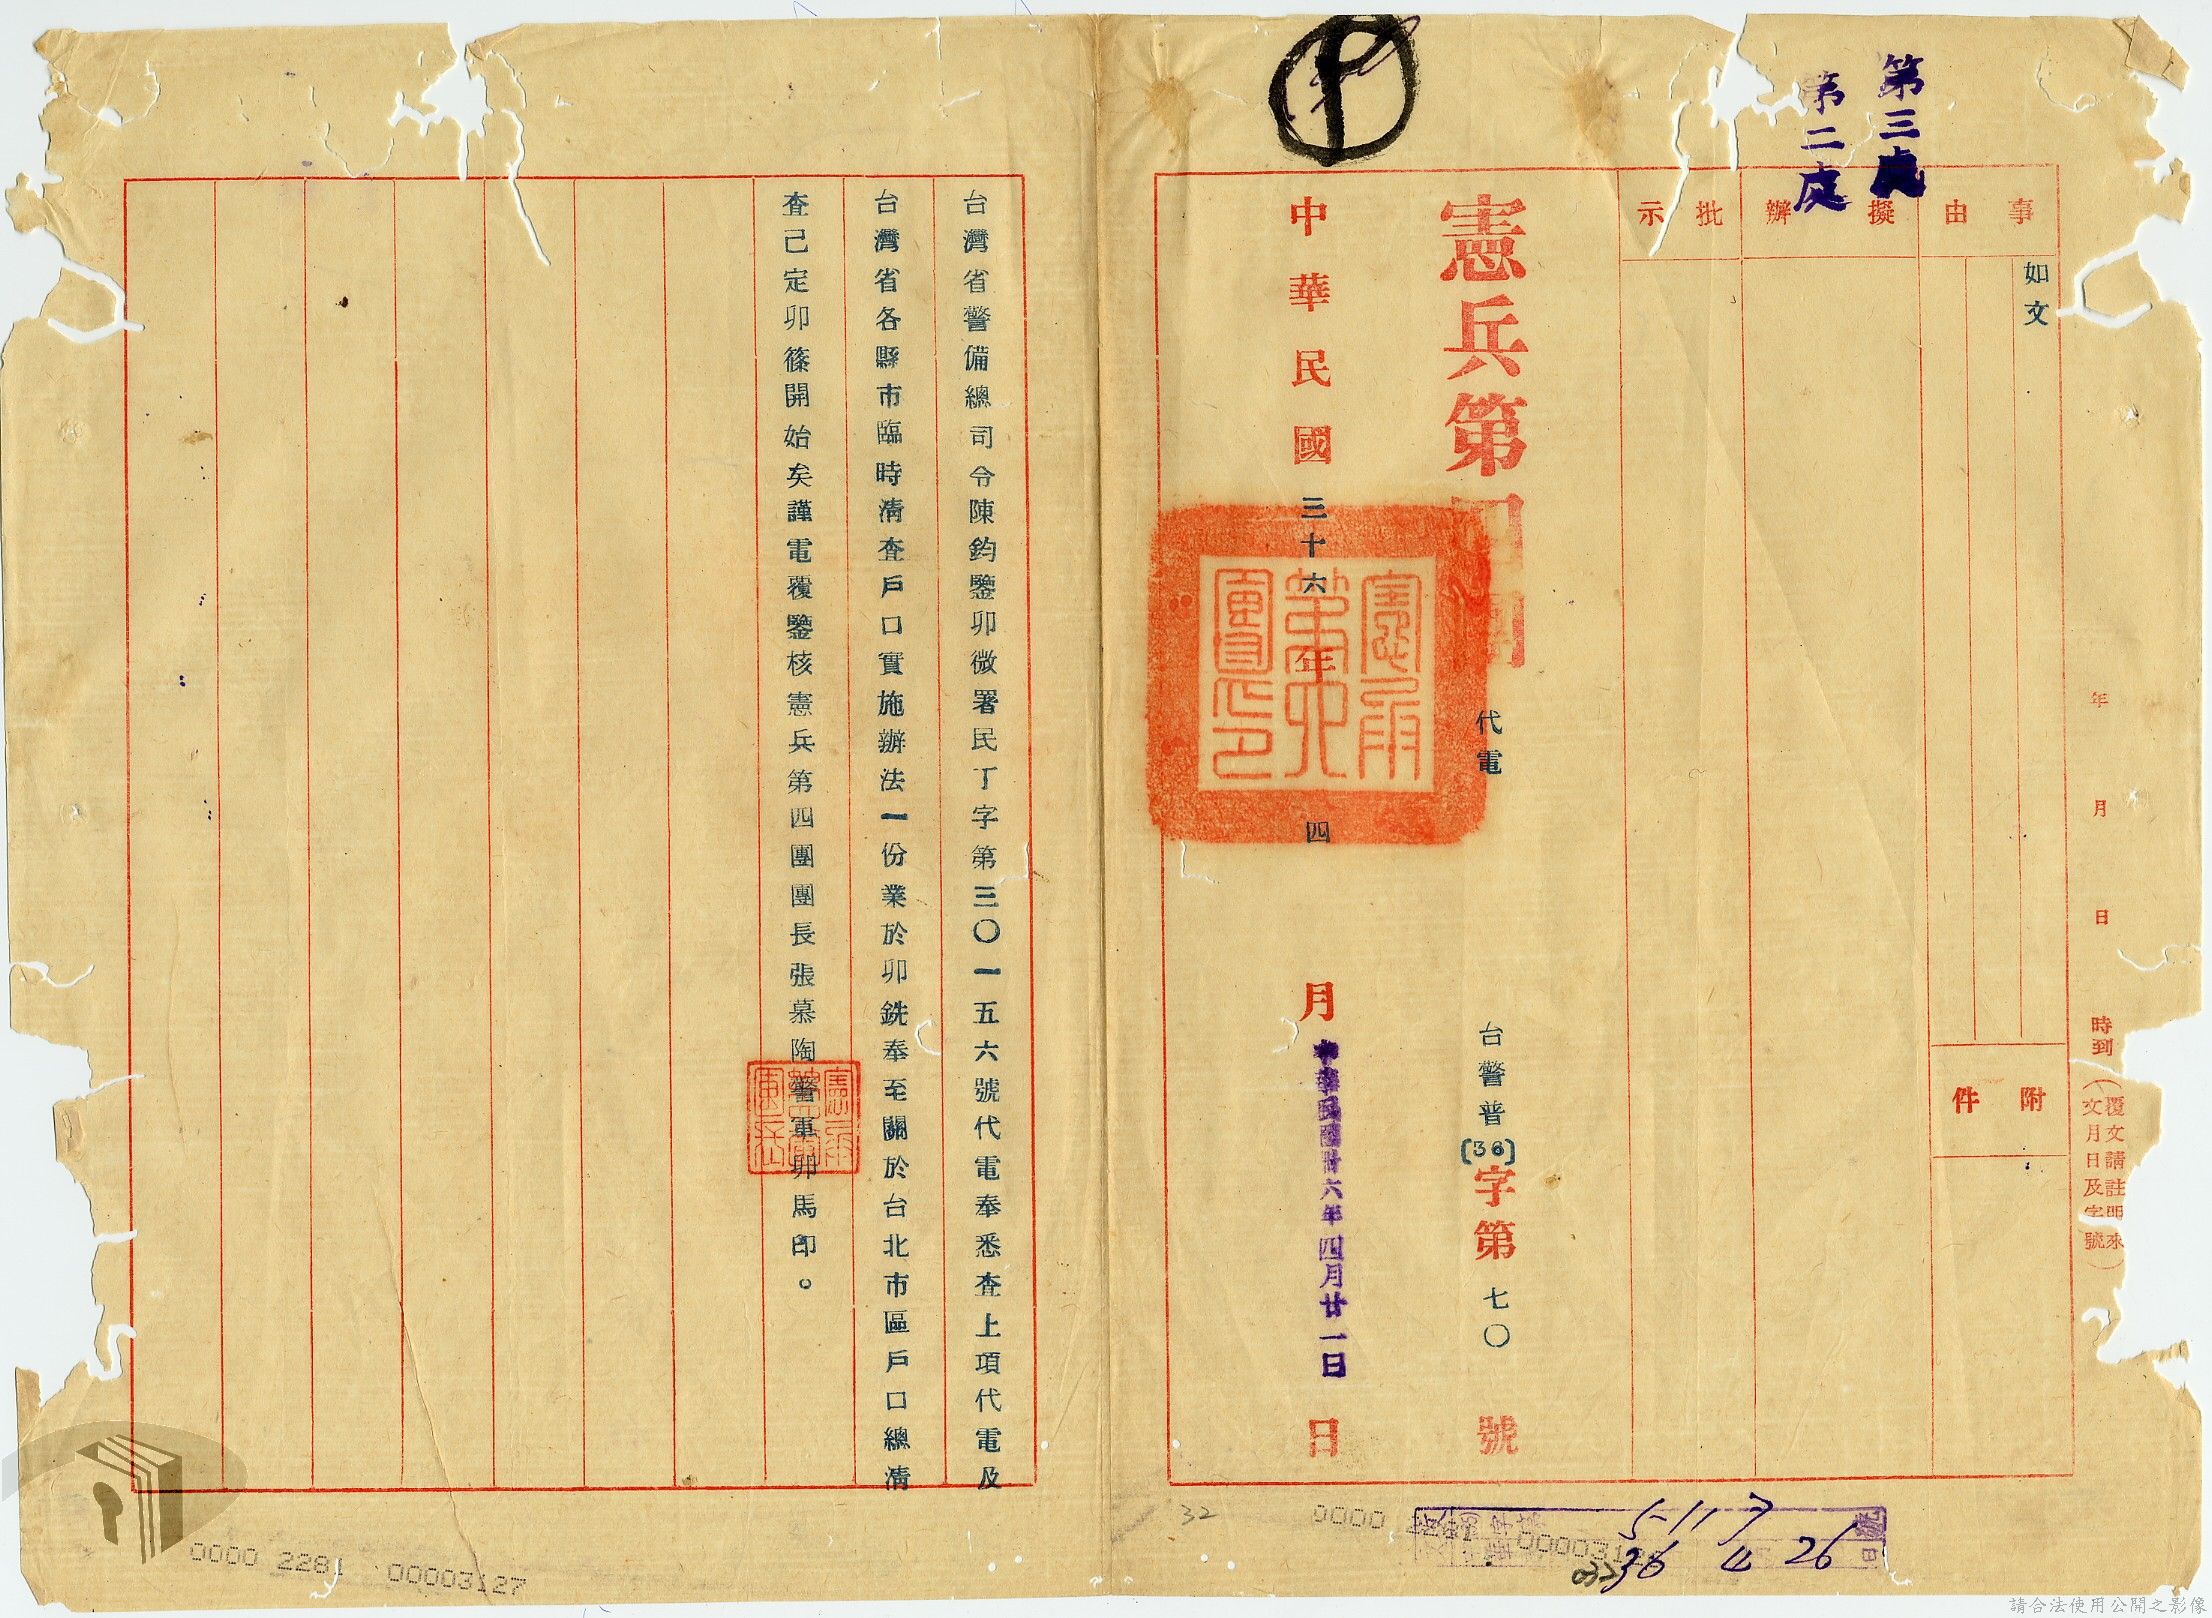 第三處
第二處
年 月 日 時到
(覆文請註明來
文月日及字號)
事由
如文
附件
擬辦
批示
憲兵第四團 代電 台警普(36)字第七〇號
中華民國三十六年四月 日
中華民國卅六年四月廿一日
台灣省警備總司令陳鈞鑒卯微署民丁字第三〇一五六號代電奉悉查上項代電及
台灣省各縣市臨時清查戶口實施辦法一份業於卯銑奉至關於台北市區戶口總清
查己定卯篠開始矣謹電覆鑒核憲兵第四團團長張慕陶警軍卯馬印。
32
0000 2281 00003127
0000
5117
36 4 26
請合法使用公開之影像